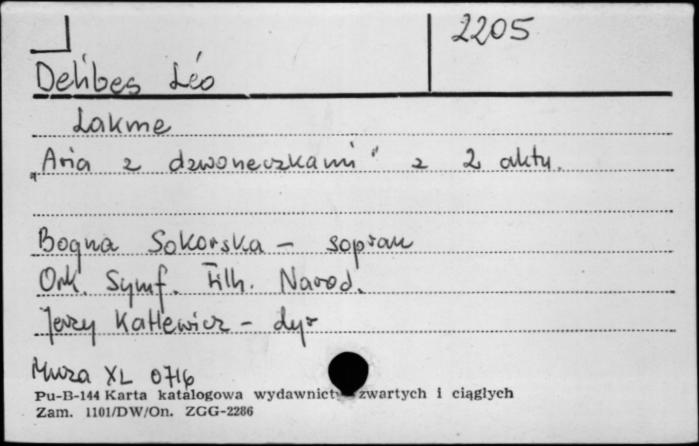 2205
Delibes Léo
Lakme
„Aria z dzwoneczkami" z 2 aktu.
Bogna Sokorska – sopran
Ork. Symf. Filh. Narod.
Jerzy Katlewicz – dyr
Muza XL 0716
Pu-B-144 Karta katalogowa wydawnictw zwartych i ciągłych
Zam. 1101/DW/On. ZGG-2286